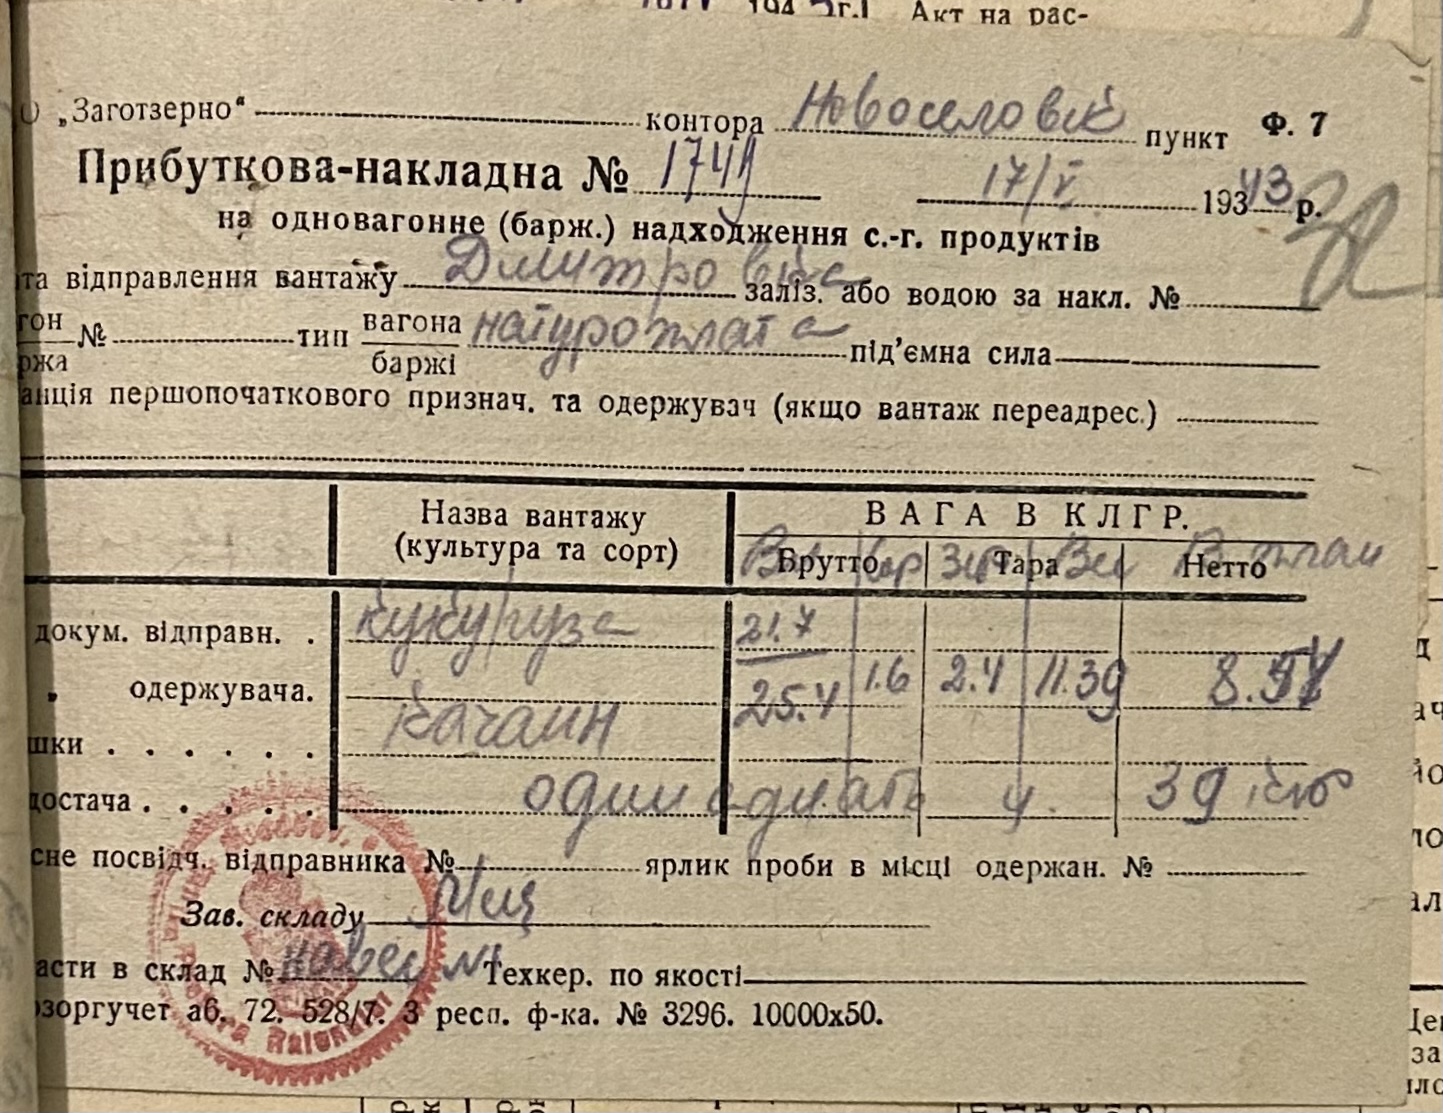 194 г.) Акт на рас-
"Заготзерно" контора Новоселовск пункт Ф. 7
Прибуткова-накладна № 1744 17/V 193 43 р.
на одновагонне (барж.) надходження с.-г. продуктів
та відправлення вантажу Дмитровка заліз. або водою за накл. №
гон № тип вагона натуроплата під'ємна сила
ржа баржі
анція першопочаткового признач. та одержувач (якщо вантаж переадрес.)
Назва вантажу ВАГА В КЛГР.
(культура та сорт) Брутто Тара Нетто
докум. відправн. . кукуруза 21.7
" одержувача. 25.4 1.6 2.4 11.39
шки . . . . . . качан
достача . . . . . 39 кіло
сне посвідч. відправника № ярлик проби в місці одержан. №
Зав. складу
асти в склад № Техкер. по якості
озоргучет аб. 72. 528/7. 3 респ. ф-ка. № 3296. 10000х50.